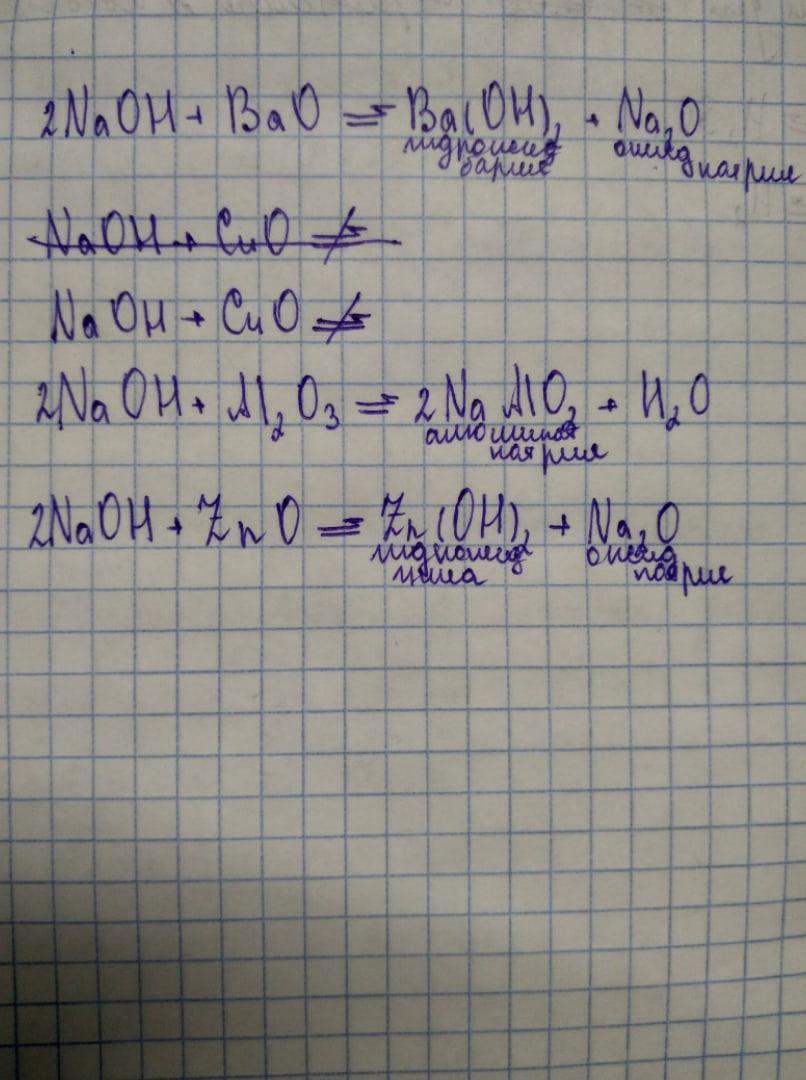 2NaOH + BaO = Ba(OH)₂ + Na₂O
гидроксид оксид
бария натрия
NaOH + CuO ≠
NaOH + CuO ≠
2NaOH + Al₂O₃ = 2NaAlO₂ + H₂O
алюминат
натрия
2NaOH + ZnO = Zn(OH)₂ + Na₂O
гидроксид оксид
цинка натрия